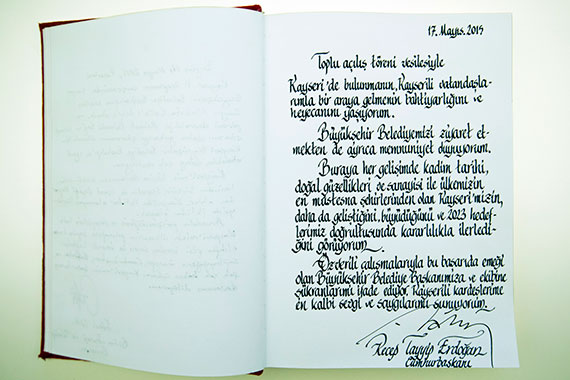 17. Mayıs. 2015
Toplu açılış töreni vesilesiyle
Kayseri'de bulunmanın, Kayserili vatandaşla-
rımla bir araya gelmenin bahtiyarlığını ve
heyecanını yaşıyorum.
Büyükşehir Belediyemizi ziyaret et-
mekten de ayrıca memnuniyet duyuyorum.
Buraya her gelişimde kadim tarihi,
doğal güzellikleri ve sanayisi ile ülkemizin
en müstesna şehirlerinden olan Kayseri'mizin,
daha da geliştiğini, büyüdüğünü ve 2023 hedef-
lerimiz doğrultusunda kararlılıkla ilerledi-
ğini görüyorum.
Özverili çalışmalarıyla bu başarıda emeği
olan Büyükşehir Belediye Başkanımıza ve ekibine
şükranlarımı ifade ediyor, Kayserili kardeşlerime
en kalbi sevgi ve saygılarımı sunuyorum.
Recep Tayyip Erdoğan
Cumhurbaşkanı